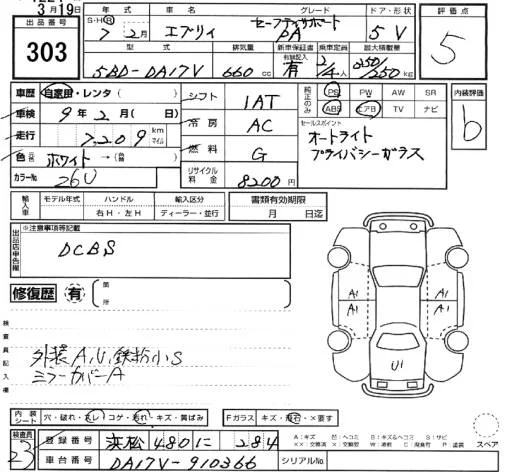 3月19日
出品番号 303
年式 S・H・R 7年 2月
車名 エブリィ
グレード セーフティサポート PA
ドア・形状 5 V
評価点 5
型式 5BD-DA17V
排気量 660 cc
新車保証書 有無記入 有
乗車定員 2/4人
最大積載量 350/250kg
車歴 自家用・レンタ ( )
車検 9年 2月 ( 日)
走行 7,209 km マイル
色 元色 ホワイト → (替 )
カラーNo 26U
シフト 1AT
冷房 AC
燃料 G
リサイクル料金 8200円
純正のみ PS PW AW SR
ABS エアB TV ナビ
セールスポイント
オートライト
プライバシーガラス
内装評価 b
輸入車 モデル年式 ハンドル 輸入区分
右H・左H ディーラー・並行
書類有効期限
月 日迄
出品店申告欄 ※注意事項等記載
DCBS
修復歴 有 箇所
検査員記入欄
外装A,U,鉄粉小S
ミラーカバーA
A1 A1
A1 A1
U1
内装シート 穴・破れ・丸い・コゲ・汚れ・キズ・黄ばみ
Fガラス キズ・飛石・×要す
A:キズ U:ヘコミ B:キズ&ヘコミ S:サビ
××:交換済 X:交換 W:波板 C:腐食 P:塗装
スペア
検査員 23
登録番号 浜松 480 に 284
車台番号 DA17V-910366
シリアルNo.